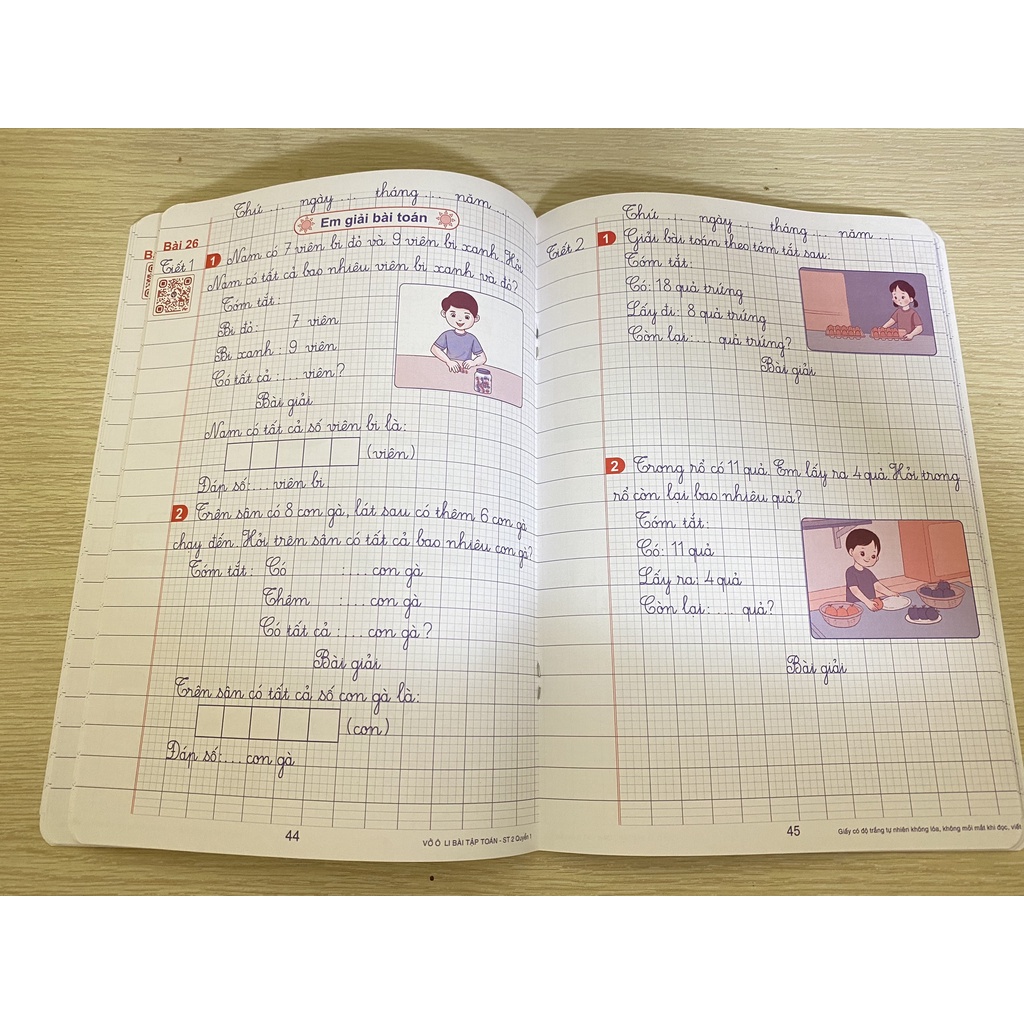 Thứ ... ngày ... tháng ... năm ...
Em giải bài toán
Bài 26
Tiết 1
1 Nam có 7 viên bi đỏ và 9 viên bi xanh. Hỏi
Nam có tất cả bao nhiêu viên bi xanh và đỏ?
Tóm tắt:
Bi đỏ: 7 viên
Bi xanh: 9 viên
Có tất cả .... viên?
Bài giải
Nam có tất cả số viên bi là:
(viên)
Đáp số: ... viên bi
2 Trên sân có 8 con gà, lát sau có thêm 6 con gà
chạy đến. Hỏi trên sân có tất cả bao nhiêu con gà?
Tóm tắt: Có : ... con gà
Thêm : ... con gà
Có tất cả : ... con gà?
Bài giải
Trên sân có tất cả số con gà là:
(con)
Đáp số: ... con gà
44
VỞ Ô LI BÀI TẬP TOÁN - ST 2 Quyển 1
Thứ ... ngày ... tháng ... năm ...
Tiết 2
1 Giải bài toán theo tóm tắt sau:
Tóm tắt:
Có: 18 quả trứng
Lấy đi: 8 quả trứng
Còn lại: ... quả trứng?
Bài giải
2 Trong rổ có 11 quả. Em lấy ra 4 quả. Hỏi trong
rổ còn lại bao nhiêu quả?
Tóm tắt:
Có: 11 quả
Lấy ra: 4 quả
Còn lại: ... quả?
Bài giải
45
Giấy có độ trắng tự nhiên không lóa, không mỏi mắt khi đọc, viết